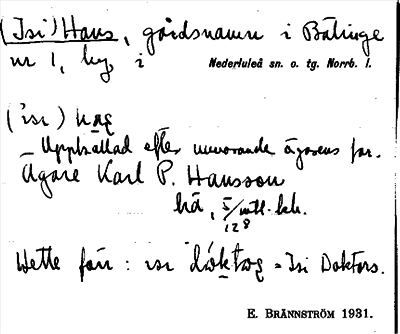 (Isi) Hans, gårdsnamn i Bälinge
nr 1, by i Nederluleå sn. o. tg. Norrb. l.
('ısı) has
Uppkallad efter nuvarande ägarens far.
Ägare Karl P. Hansson
här, 5/128 mtl. kr.
Förr: ısı = Isi Doktors.
E. BRÄNNSTRÖM 1931.